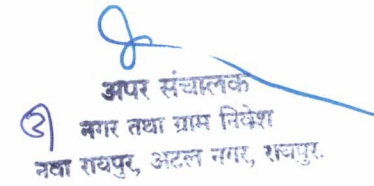 अपर संचालक
नगर तथा ग्राम निवेश
नवा रायपुर, अटल नगर, रायपुर.